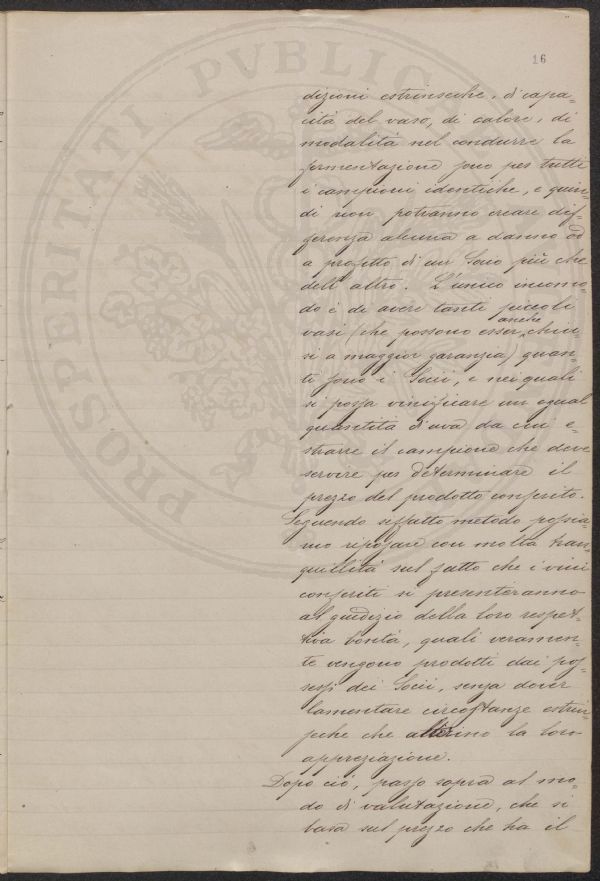 16
PROSPERITATI PVBLICAE
dizioni estrinseche, di capa=
cità del vaso, di calore, di
modalità nel condurre la
fermentazione sono per tutti
i campioni identiche, e quin=
di non potranno creare dif=
ferenza alcuna a danno od
a profitto di un Socio più che
dell'altro. L'unico incomo=
do è di avere tanti piccoli
anche
vasi (che possono esser chiu=
si a maggior garanzia) quan=
ti sono i Socii, e nei quali
si possa vinificare un egual
quantità d'uva da cui e=
strarre il campione che deve
servire per determinare il
prezzo del prodotto conferito.
Seguendo siffatto metodo possia=
mo riposare con molta tran=
quillità sul fatto che i vini
conferiti si presenteranno
al giudizio della loro respet=
tiva bontà, quali veramen=
te vengono prodotti dai pos=
sessi dei Socii, senza dover
lamentare circostanze estrin=
seche che alterino la loro
appreziazione.
Dopo ciò, passo sopra al mo=
do di valutazione, che si
basa sul prezzo che ha il